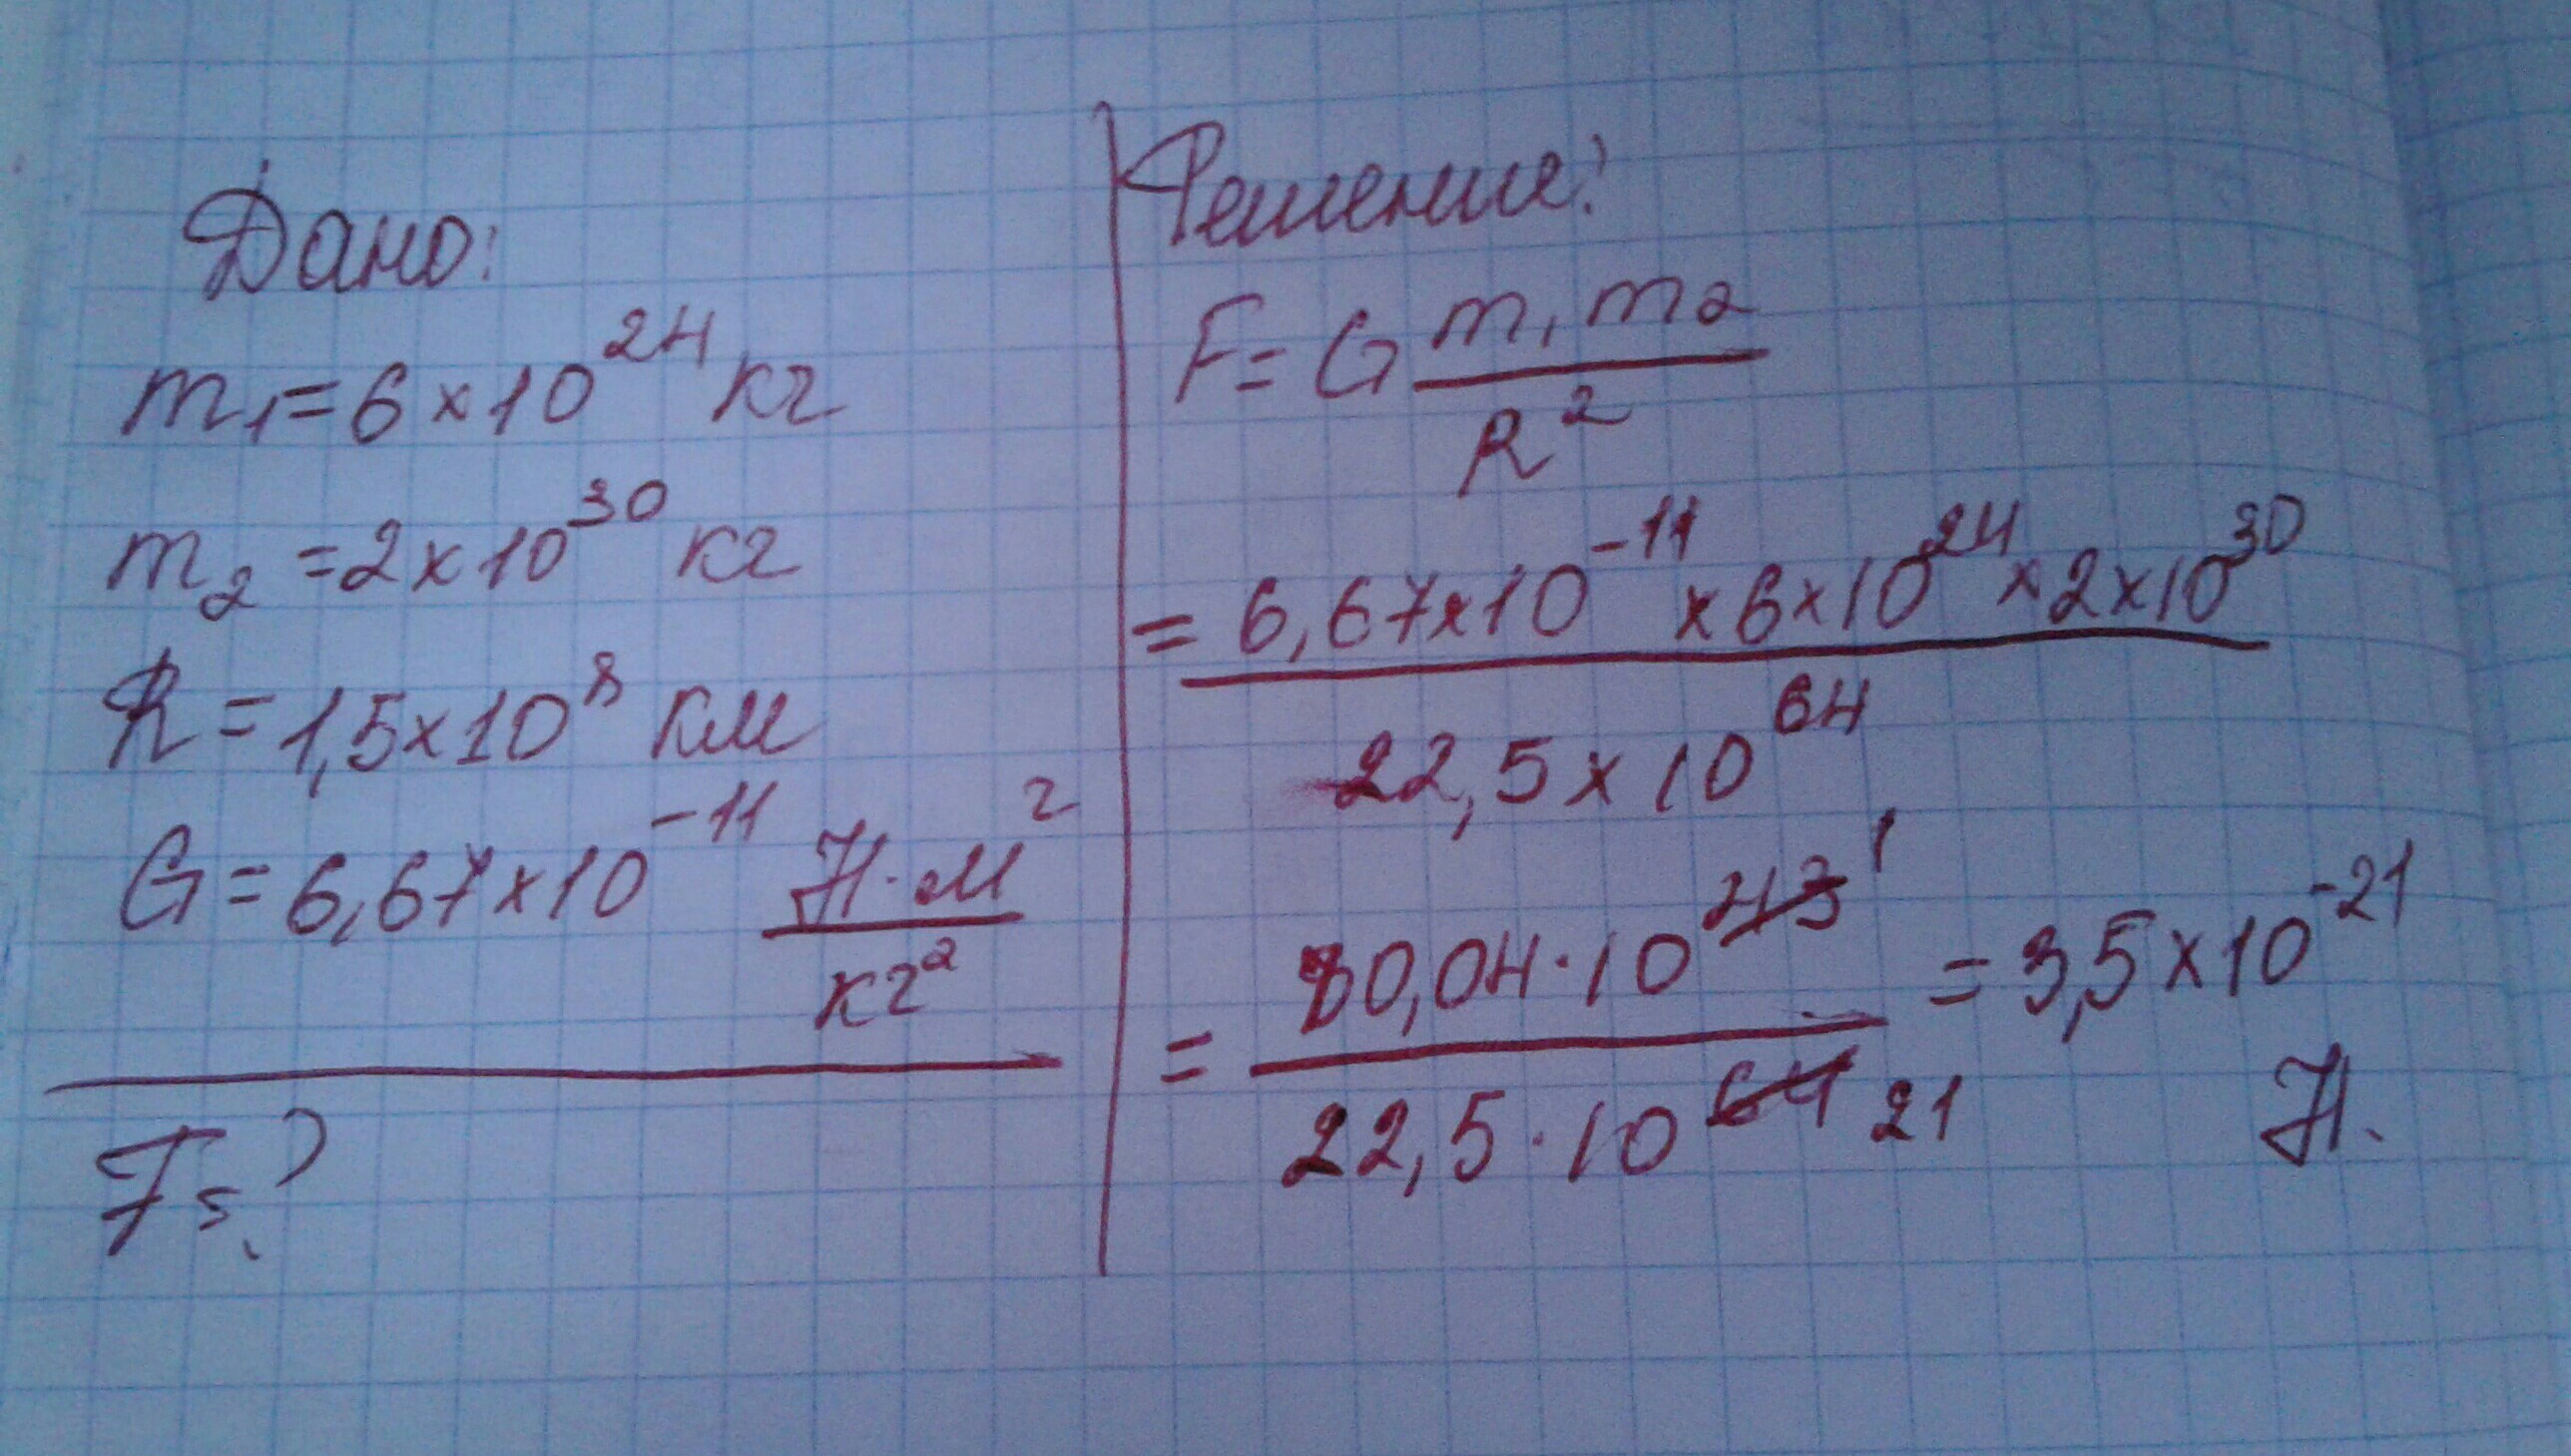 Дано:
m₁=6×10²⁴ кг
m₂=2×10³⁰ кг
R=1,5×10⁸ км
G=6,67×10⁻¹¹ Н·м²/кг²
F=?
Решение:
F=G m₁m₂/R²
= 6,67×10⁻¹¹×6×10²⁴×2×10³⁰/22,5×10⁶⁴
= 80,04·10⁴³ ¹/22,5·10⁶⁴ 21 = 3,5×10⁻²¹
Н.